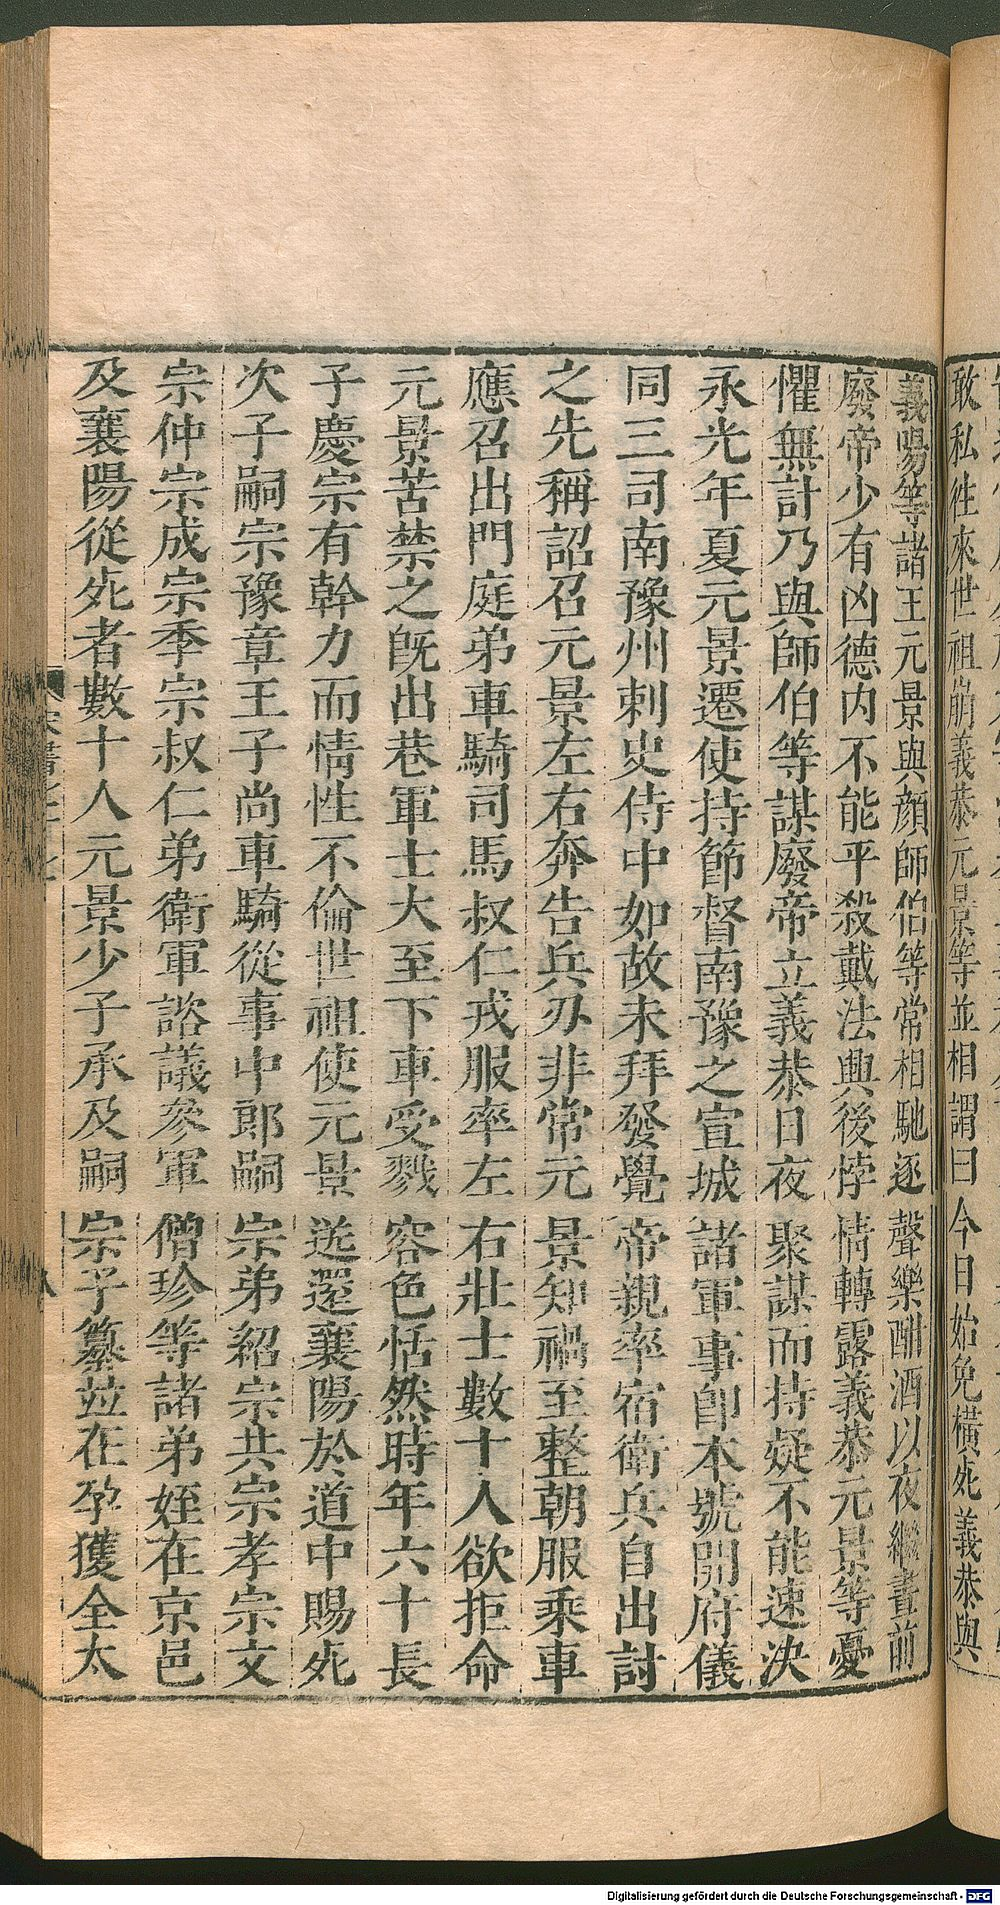 敢私徃來世祖崩義恭元景等並相謂曰今日始免橫死義恭與
義陽等諸王元景與顏師伯等常相馳逐聲樂酣酒以夜繼晝前
廢帝少有凶德內不能平殺戴法興後悖情轉露義恭元景等憂
懼無計乃與師伯等謀廢帝立義恭日夜聚謀而持疑不能速決
永光年夏元景遷使持節督南豫之宣城諸軍事卽本號開府儀
同三司南豫州刺史侍中如故未拜發覺帝親率宿衛兵自出討
之先稱詔召元景左右奔告兵刃非常元景知禍至整朝服乘車
應召出門庭弟車騎司馬叔仁戎服率左右壯士數十人欲拒命
元景苦禁之旣出巷軍士大至下車受戮容色恬然時年六十長
子慶宗有幹力而情性不倫世祖使元景送還襄陽於道中賜死
次子嗣宗豫章王子尚車騎從事中郎嗣宗弟紹宗共宗孝宗文
宗仲宗成宗季宗叔仁弟衛軍諮議參軍僧珍等諸弟姪在京邑
及襄陽從死者數十人元景少子承及嗣宗子纂並在孕獲全太
宋書七十七
八
Digitalisierung gefördert durch die Deutsche Forschungsgemeinschaft - DFG